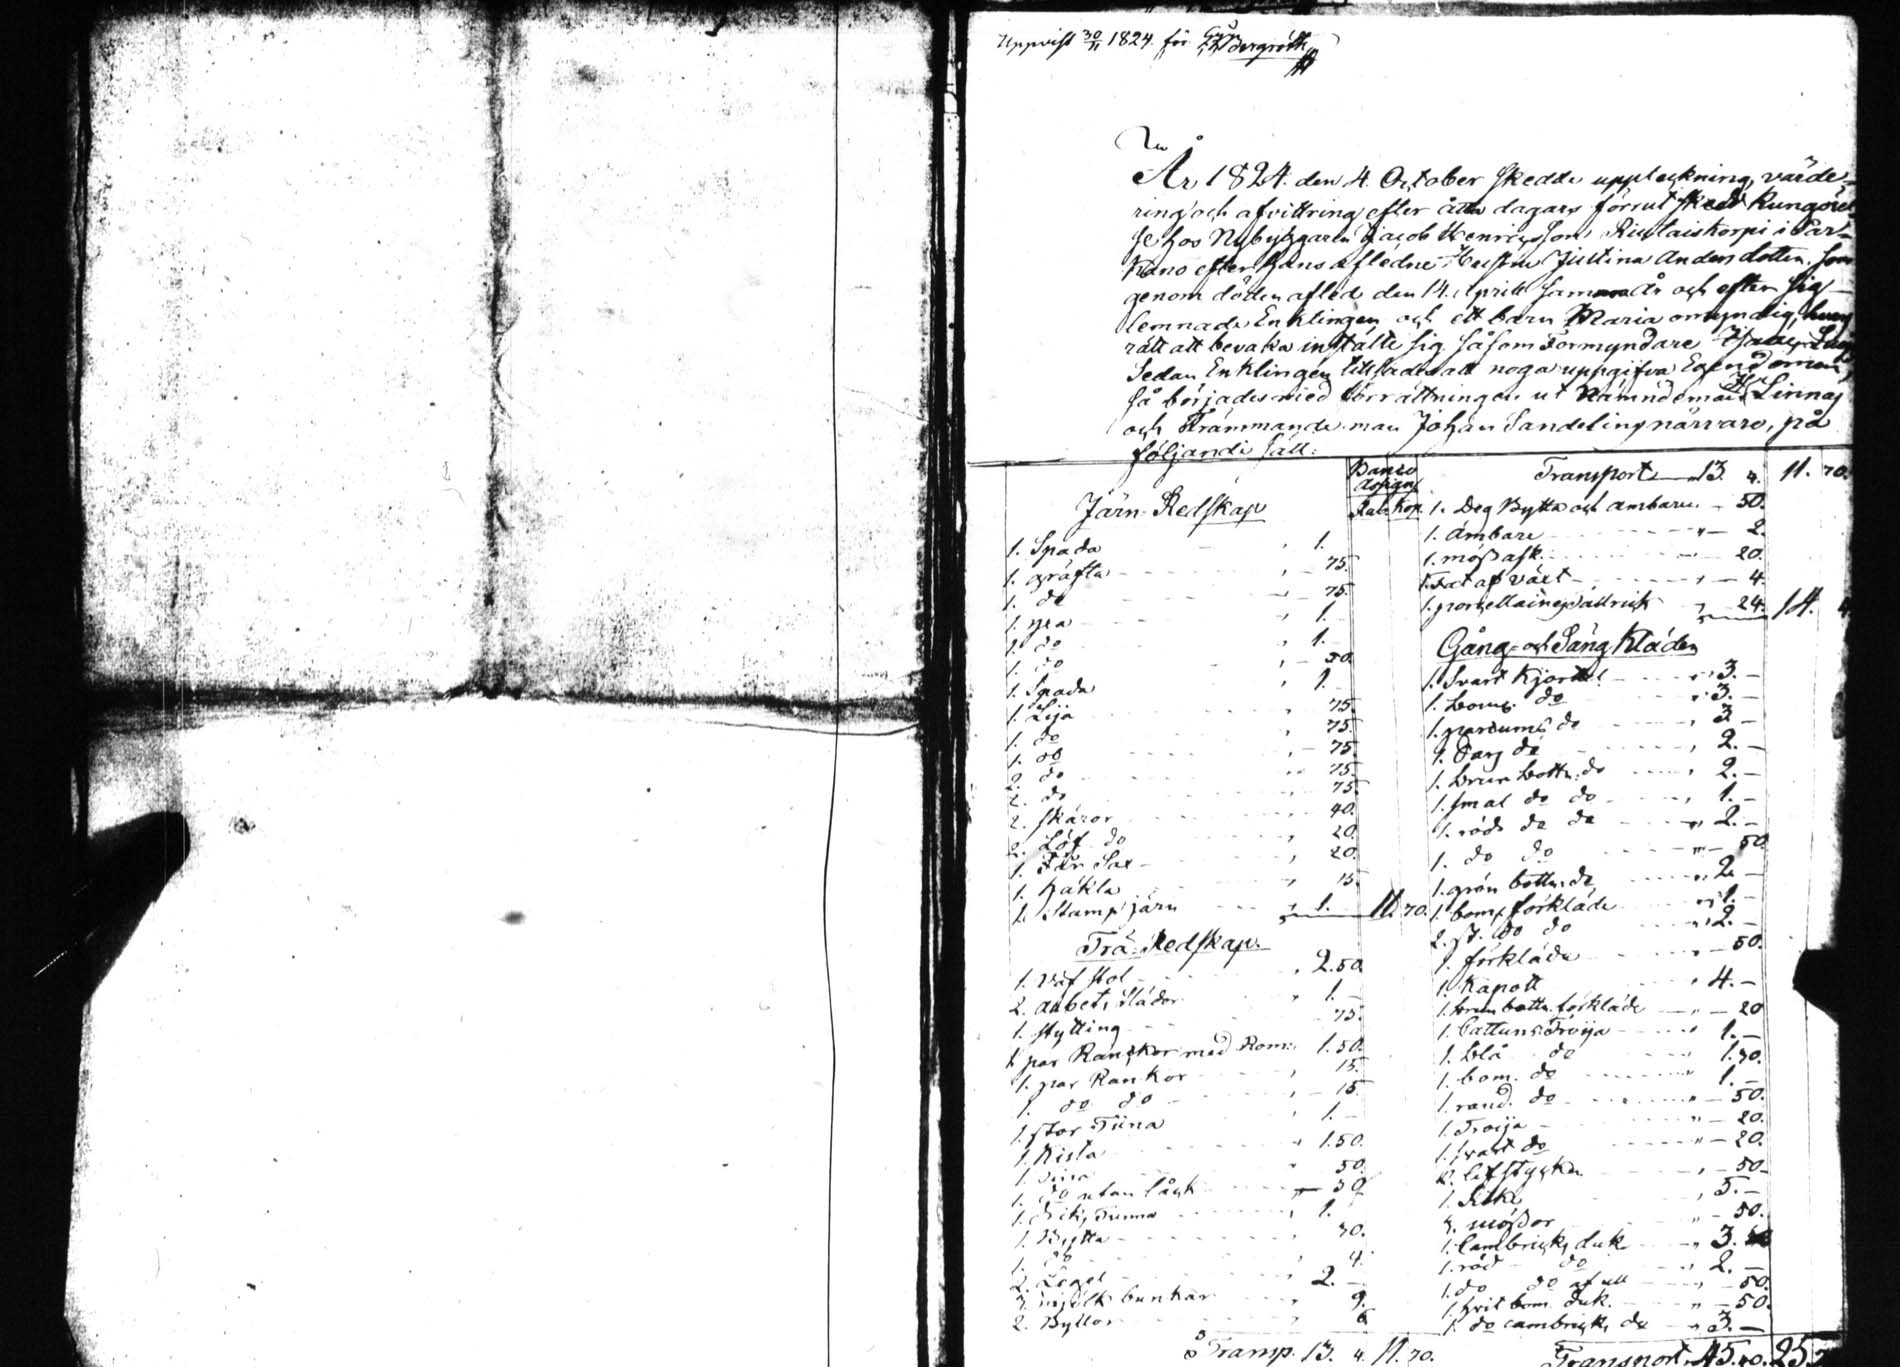 Uppvist 30/11 1824. för Bergroth
År 1824. den 4. October skedde uppteckning, värde-
ring och afvittring efter åtta dagars förrut skedd Kungörel
se hos Nybyggaren Jacob Henricsson Riulaiskorpi i Par-
kano efter hans afledne Hustru Justina Andersdotter, som
genom döden afled den 14. April samma År och efter sig
lemnade Enklingen och ett barn Maria omyndig, hvars
rätt att bevaka instälte sig såsom Formyndare
Sedan Enklingen tillsades att noga uppgifva Egendomen,
så börjades med förrättningen ut Nämndeman Linnas
och Främmande man Johan Sandelins närvaro, på
följande sätt:
Banco Assign.
Rub. Kop.
Järn-Redskap
1. Spada 1.
1. gräfta 75.
1. do 75.
1. yxa 1.
1. do 1.
1. do 50.
1. Spada 1.
1. Lija 75.
1. do 75.
1. do 75.
2. do 75.
2. do 75.
2. skäror 40.
2. Löf do 20.
1. Får Sax 20.
1. Häkla 15.
1. Stamp järn 1. 11. 70.
Trä-Redskap.
1. Väf stol 2.50.
2. Arbets slädor 1.
1. stytting 75.
1. par Kanckor med Rom: 1.50.
1. par Kankor 15.
1. do do 15
1. stor Tiina 1.
1. Kista 1.50.
1. 50.
1. do utan låck 30
1. Tunna 1.
1. Bytta 70.
1. do 4.
2. Legel 2.
3. mjölk bunkar 9.
2. Byttor 6
Transp. 13. 4. 11. 70.
Transport 13. 4. 11. 70.
1. Deg Bytta och ämbare 50.
1. ämbare 2.
1. mössask 20.
1. Fat af växt 4.
1. porcellaines tallrick 24. 14. 4
Gång- och Säng Kläder
1. Svart Kjortel 3.
1. bom. do 3.
1. parcums do 3
1. Sarg do 2.
1. brun bottn. do 2.
1. smal do do 1.
1. röd do do 2.
1. do do 50
1. grön bottn. do 2.
1. bom. förkläde 1.
2. st. do do 2.
1. förkläde 50.
1. Kapott 4.
1. brun bottn. förkläde 20
1. Cattuns Tröija 1.
1. blå do 1.70.
1. bom. do 1.
1. rand. do 50.
1. Tröija 20.
1. svart do 20.
2. lifstycken 50
1. Silke 5.
3. mössor 50.
1. Cambricks duk 3.
1. röd do 2.
1. do do af ull 50.
1. hvit bom. duk. 50.
1. do cambricks do 3.
Transport 45. 70. 25